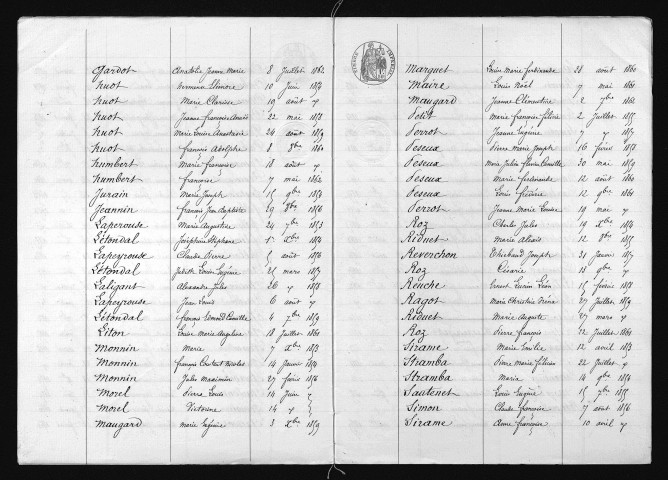 Gardot Anatolie Jeanne Marie 8 Juillet 1862
huot hermann Elinore 10 Juin 1854
huot Marie Clarisse 19 août
huot Jeanne françoise Anaïs 22 mai 1858
huot Marie Louise Anastasie 24 août 1859
huot françois Adolphe 8 8bre 1860
humbert Marie françoise 18 août
humbert françoise 7 mai 1862
Jurain Marie Joseph 15 9bre 1854
Jeannin françois Jean Baptiste 29 8bre 1856
Laperouse Marie Augustine 24 7bre 1853
Létondal Joséphine Stéphane 1er Xbre 1854
Lapeyrouse Charles Pierre 5 août 1856
Létondal Judith Louise Eugénie 21 mars 1857
Saligant Alexandre Jules 26 1858
Lapeyrouse Jean Louis 6 août
Létondal françois Edmond Camille 4 7bre 1859
Liton Louise Marie Angeline 18 Juillet 1861
Monnin Marie 7 Xbre 1853
Monnin françois Constant Nicolas 14 Janvier 1854
Monnin Jules Maximin 27 février 1856
Morel Pierre Louis 14 Juin
Morel Victorine 14
Maugard Marie Eugénie 3 Xbre 1859
TIMBRE IMPERIAL
Marguet Louise Marie ferdinande 28 août 1860
Maire Louis Noël 7 mai 1861
Maugard Jeanne Clémentine 2 7bre 1862
Petit Marie françoise Julie 2 Juillet 1855
Perrot Jeanne Eugénie 7 1857
Peseux Pierre Marie Joseph 16 février 1858
Peseux Marie Julie Camille 20 mai 1859
Peseux Marie ferdinande 12 août 1860
Peseux Louis 12 9bre 1861
Perrot Jeanne Marie Louise 19 mai
Roz Charles Jules 19 Xbre 1854
Riduet Marie Alexis 12 8bre 1855
Reverchon Thiébaud Joseph 31 Janvier 1857
Roz Césarie 18 9bre
Renche Ernest Lucien Léon 15 février 1858
Ragot Marie Christine Irène 27 Juillet 1859
Riduet Marie Auguste 27 mars
Roz Pierre françois 12 Juillet 1861
Sirame Marie Emilie 12 avril 1853
Stramba Pierre Marie félicien 22 Juillet
Stramba Marie 14 9bre 1854
Sautenet Louis Eugène 15 7bre 1855
Simon Claude françoise 7 août 1856
Sirame Anne françoise 10 avril